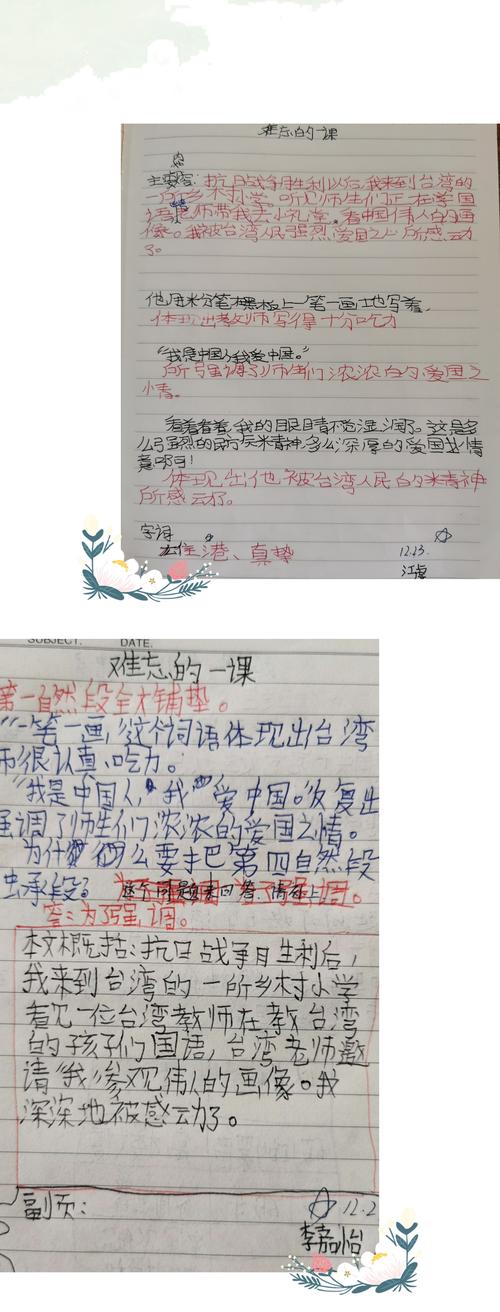 难忘的一课
主要内容:抗日战争胜利以后,我来到台湾的
一所乡村小学,听见师生们正在学国
语,老师带我去小礼堂,看中国伟人的画
像。我被台湾人民强烈爱国之心所感动
了。
他用粉笔在黑板上一笔一画地写着,
体现出教师写得十分吃力
“我是中国人,我爱中国。”
所强调了师生们浓浓的爱国之
情。
看着看着,我的眼睛不觉湿润了。这是多
么强烈的民族精神,多么深厚的爱国情
意啊!
体现出他被台湾人民的精神
所感动了。
字词
港、真挚
12.23.
江
SUBJECT: DATE:
难忘的一课
第一自然段全才铺垫。
“一笔一画”这个词语体现出台湾
师很认真、吃力。
“我是中国人,我爱中国。”反复出
强调了师生们浓浓的爱国之情。
为什么要把第四自然段
虫承段?
答:为了强调。
本文概括:抗日战争月生利后,
我来到台湾的一所乡村小学
看见一位台湾教师在教台湾
的孩子们国语,台湾老师邀
请“我”参观伟人的画像。我
深深地被感动了。
副页:
12.2
李嘉怡